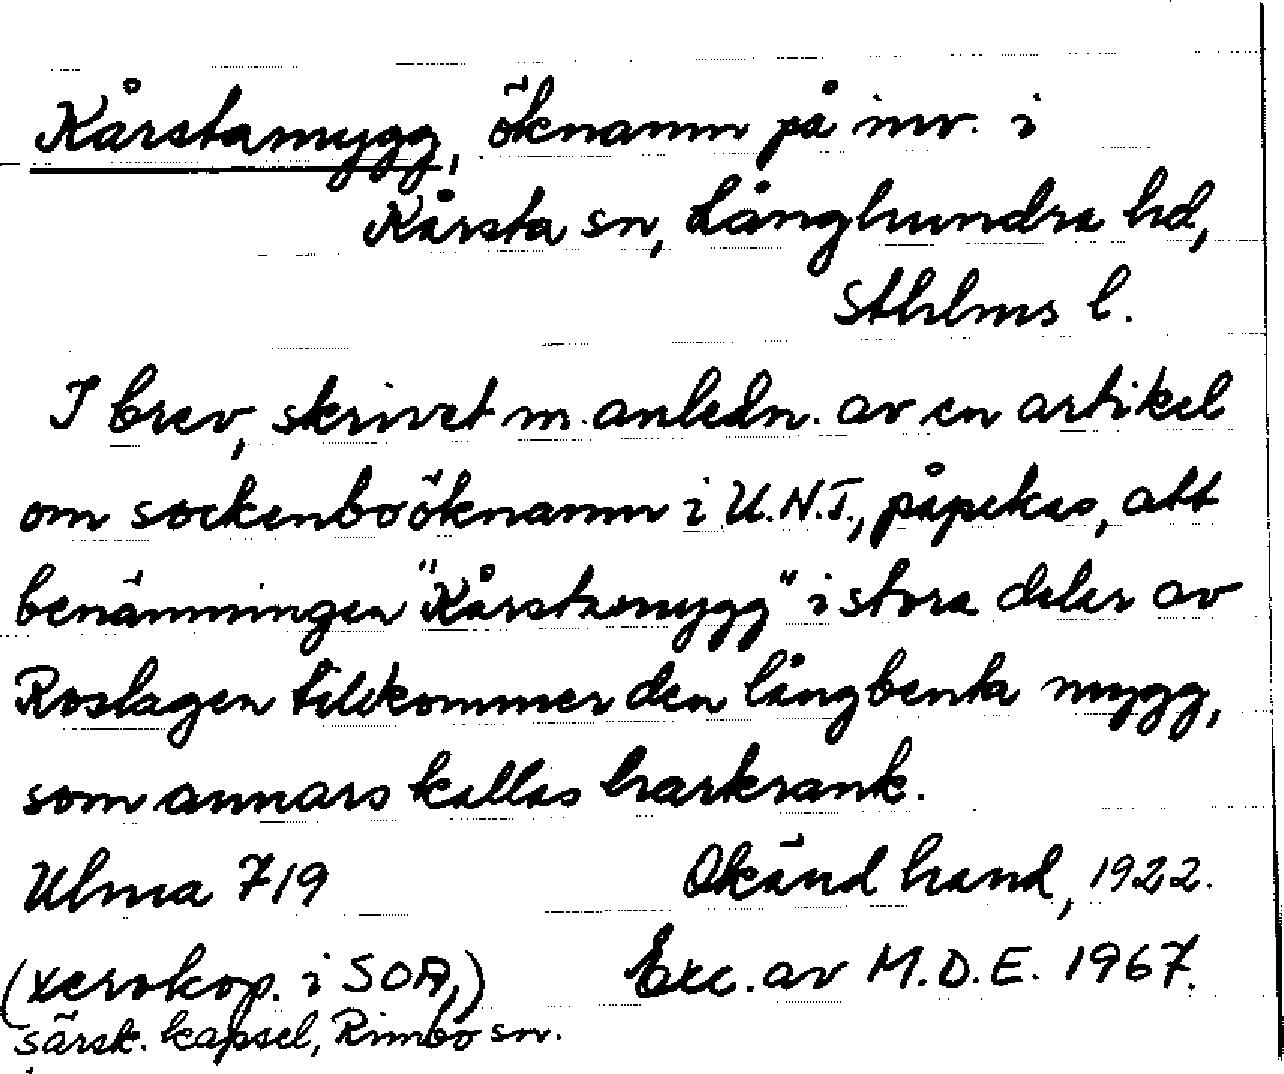 Kårstamygg, öknamn på inv. i
Kårsta sn, Långhundra hd,
Sthlms l.
I brev, skrivet m. anledn. av en artikel
om sockenboöknamn i U.N.T., påpekas, att
benämningen "Kårstamygg" i stora delar av
Roslagen tillkommer den långbenta mygg,
som annars kallas harkrank.
Ulma 719 Okänd hand, 1922.
(xerokop. i SOA,) Exc. av M.D.E. 1967.
särsk. kapsel, Rimbo sn.